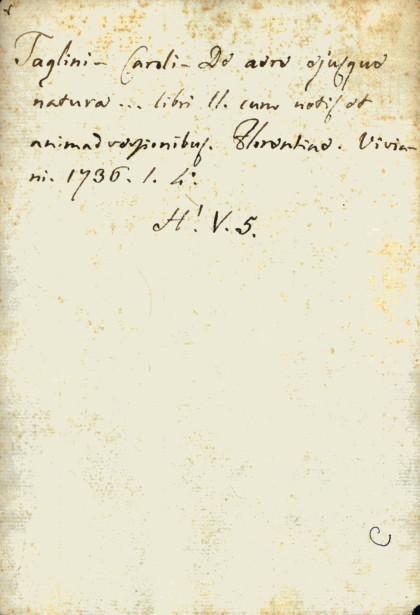 Taglini - Caroli - De aere ejusque
natura ... libri II. cum notis et
animadversionibus. Florentiae. Vivia-
ni. 1736. 1. 4.°
H! V. 5.
C